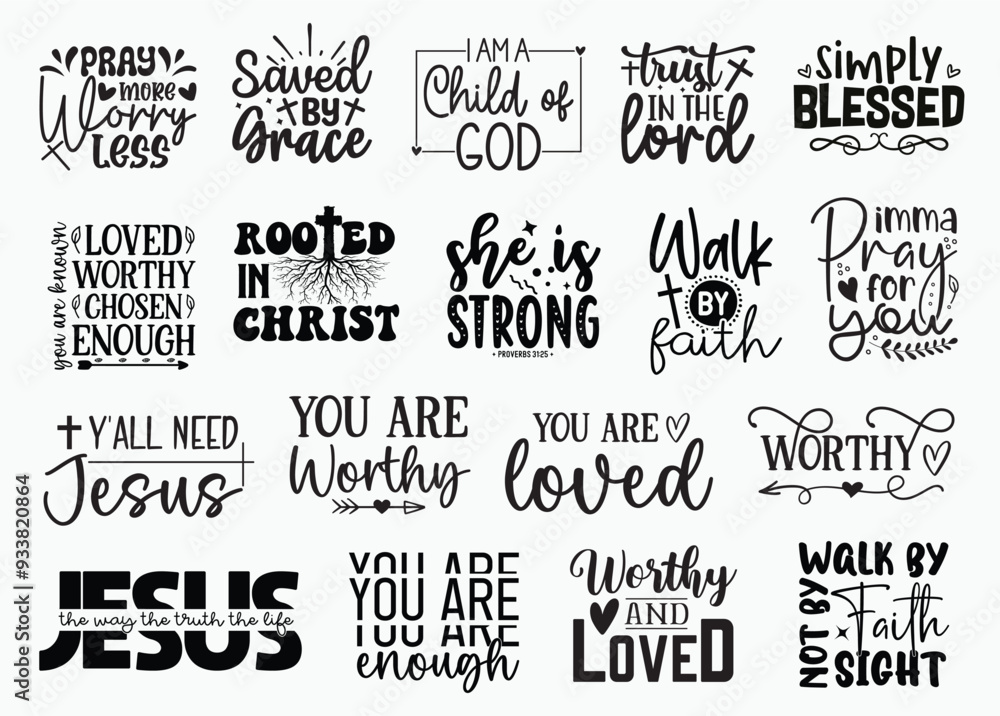 PRAY
MORE
Worry
LESS
Saved
BY
Grace
I AM A
Child of
GOD
trust
IN THE
lord
simply
BLESSED
you are known
LOVED
WORTHY
CHOSEN
ENOUGH
ROOTED
IN
CHRIST
she is
STRONG
PROVERBS 31:25
Walk
BY
faith
imma
Pray
for
you
Y'ALL NEED
Jesus
YOU ARE
Worthy
YOU ARE
loved
WORTHY
JESUS
the way the truth the life
YOU ARE
YOU ARE
YOU ARE
enough
Worthy
AND
LOVED
WALK BY
Faith
NOT BY
SIGHT
Adobe Stock | #933820864